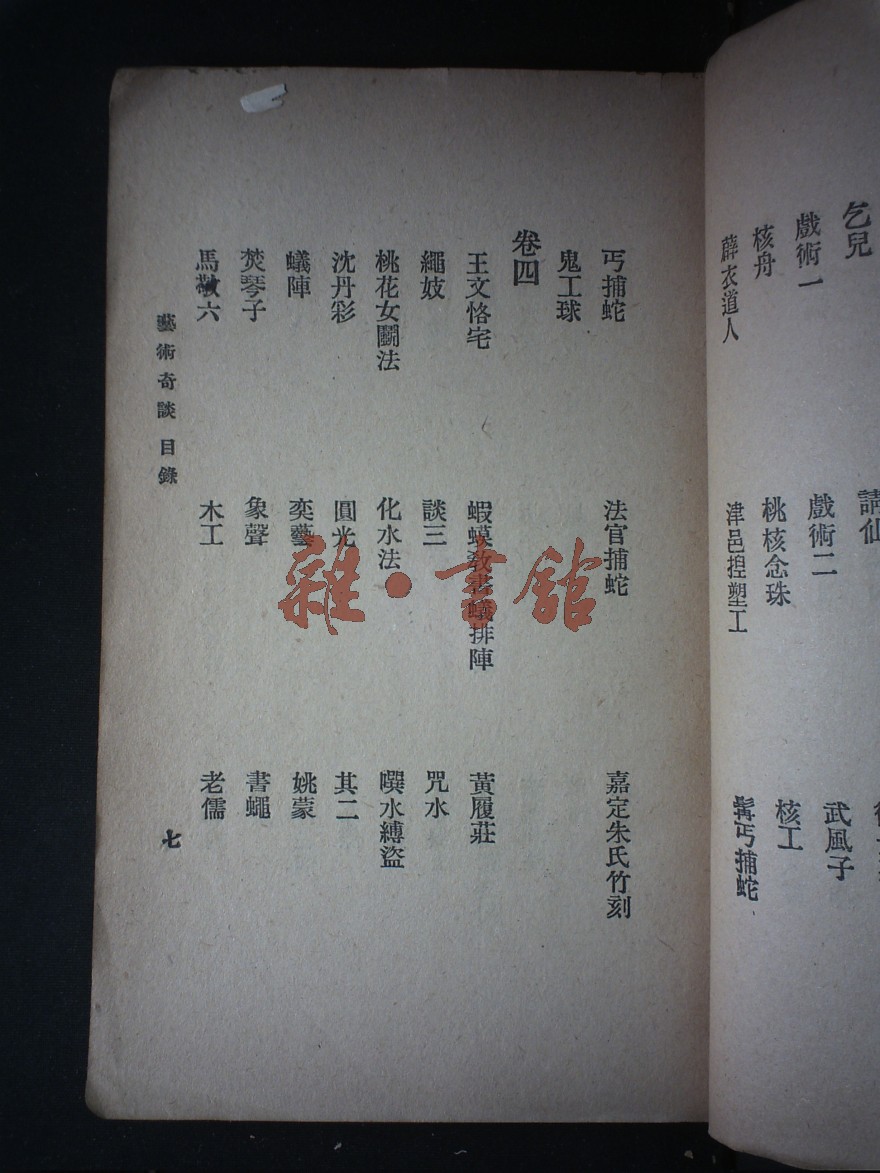 乞兒
戲術一 戲術二 武風子
核舟 桃核念珠 核工
薜衣道人 津邑揑塑工 髯丐捕蛇
丐捕蛇 法官捕蛇 嘉定朱氏竹刻
鬼工球
卷四
王文恪宅 蝦蟆教書蟻排陣 黃履莊
繩妓 談三 咒水
桃花女鬭法 化水法 噀水縛盜
沈丹彩 圓光 其二
蟻陣 奕藝 姚蒙
焚琴子 象聲 書蠅
馬敬六 木工 老儒
藝術奇談 目錄 七
雜·書館